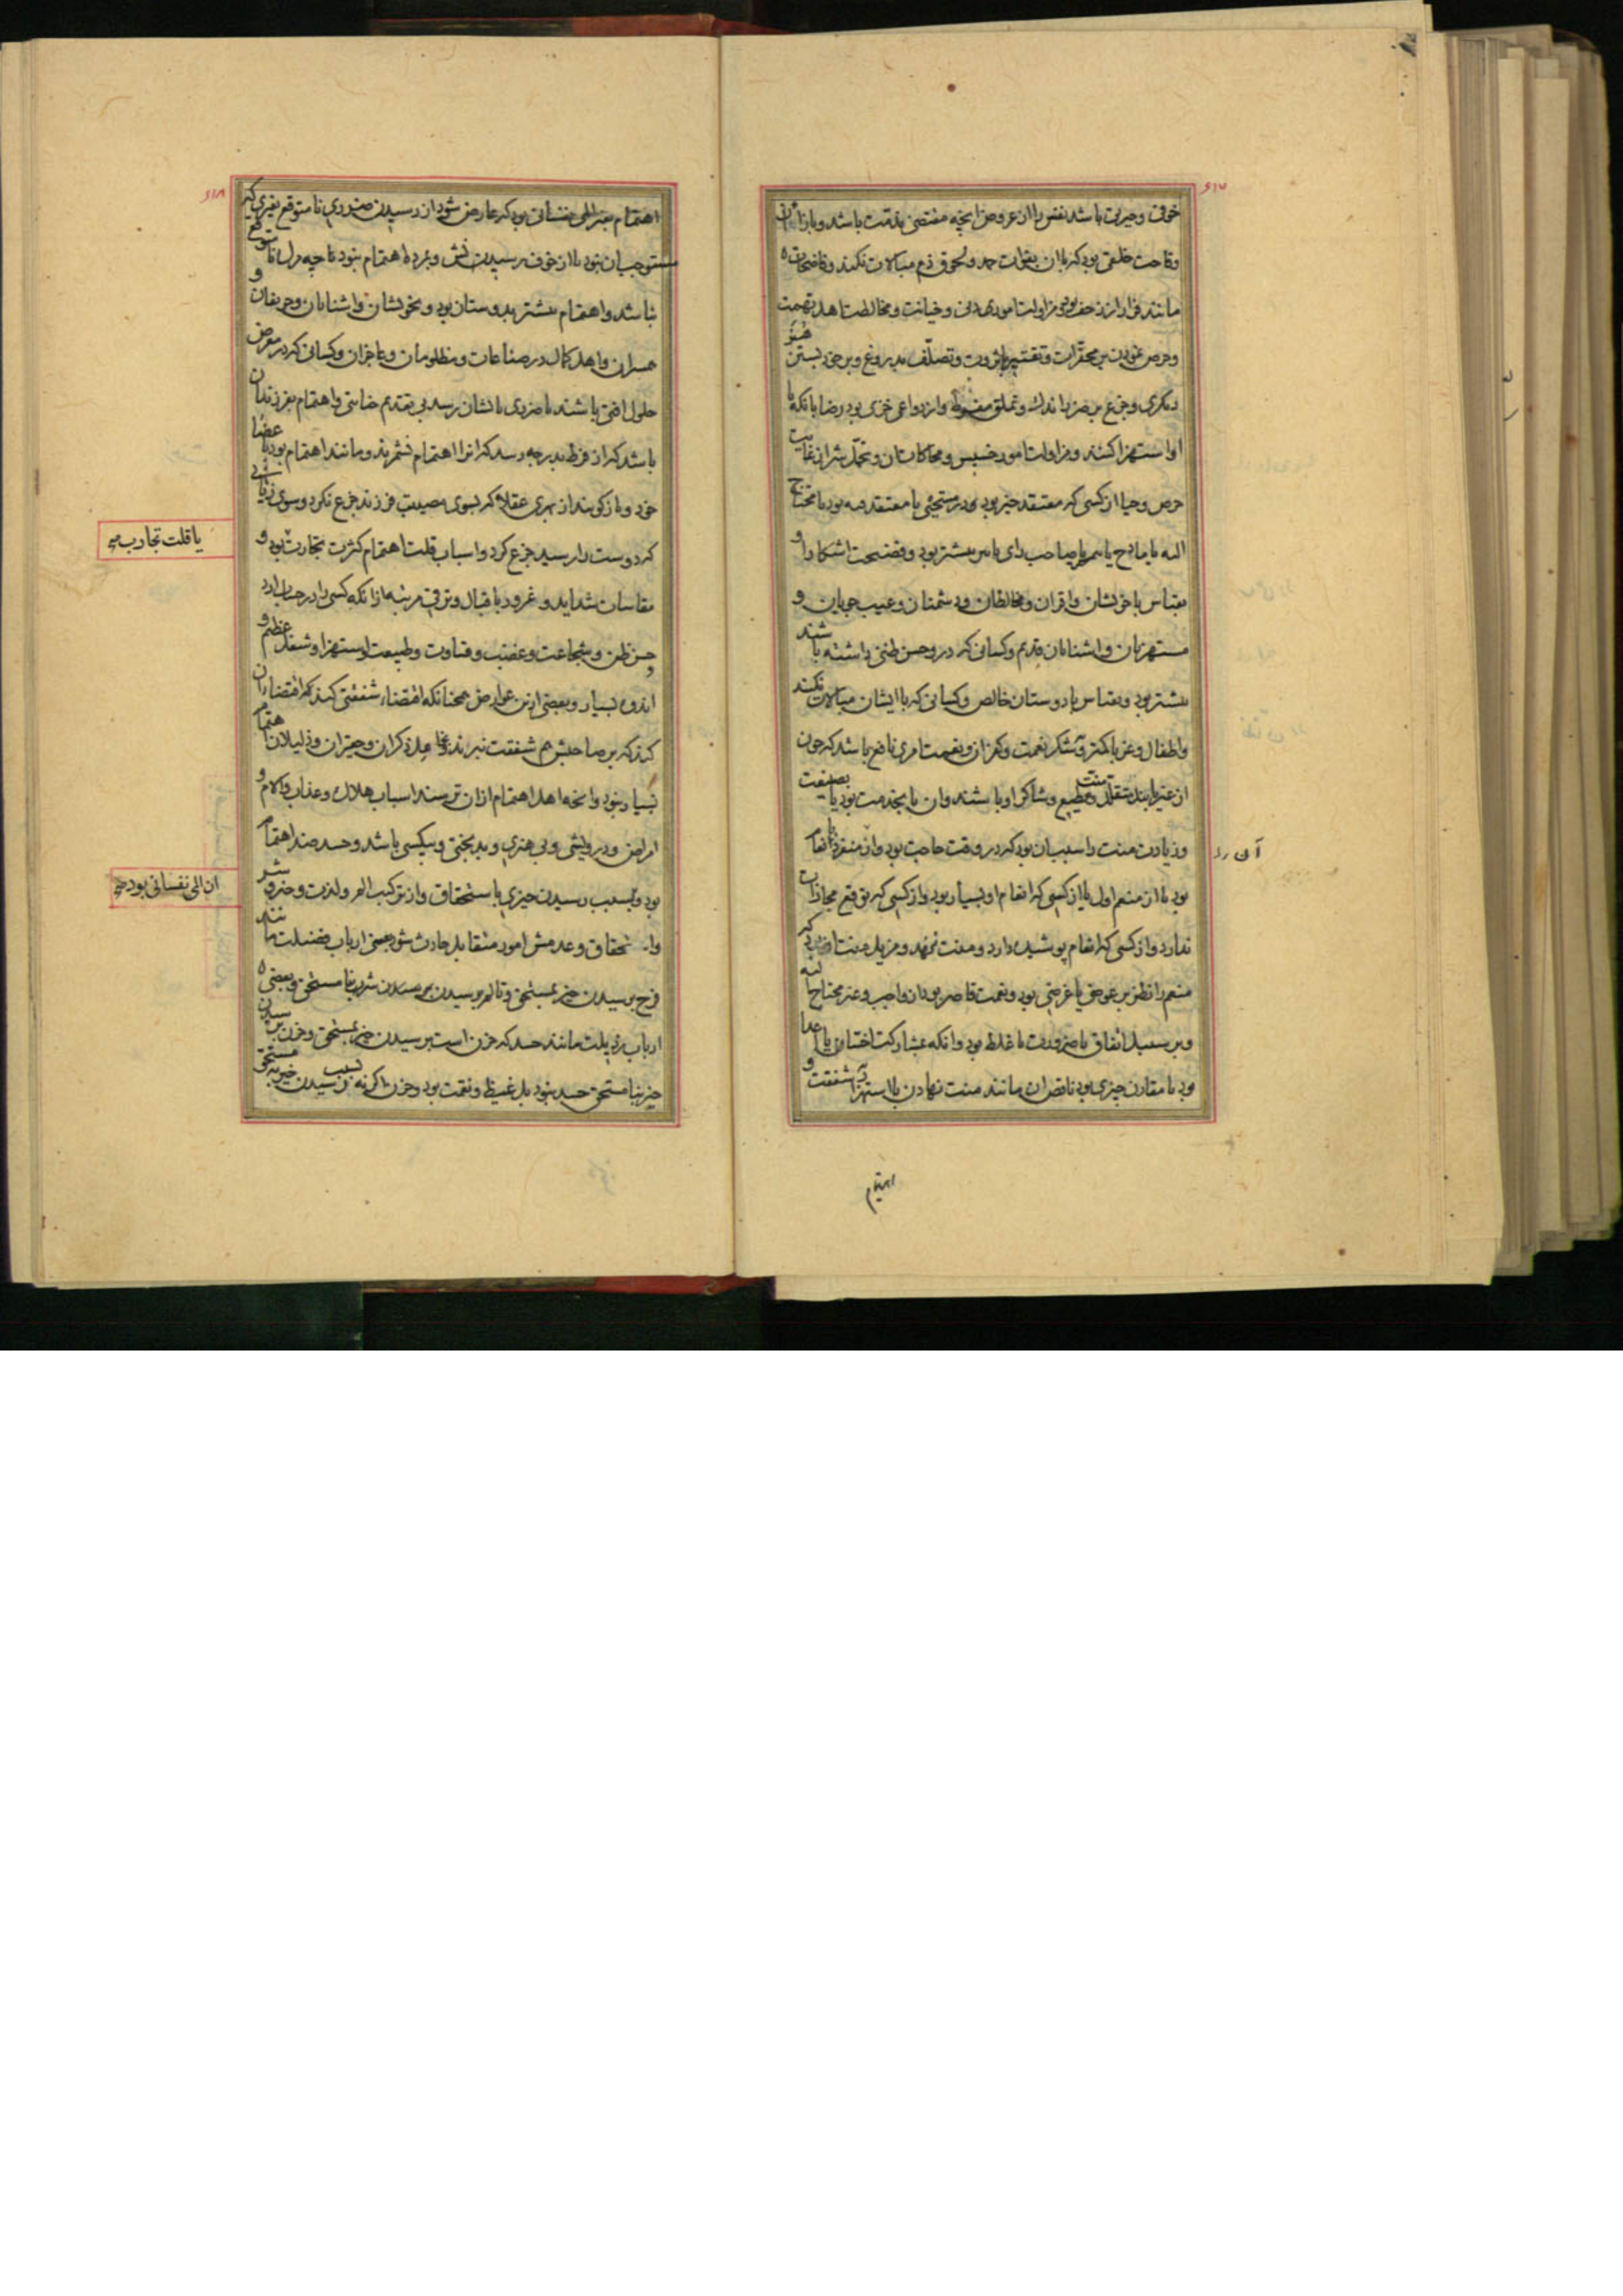 ۶۱۷
خوفی و حیرتی باشد نفس را از عروض انچه مقتضی مذمت باشد و بازاء آن
وقاحت خلقی بود که با آن بفوات حمد و لحوق ذم مبالات نکنند و فاضحات
مانند فرار از زحف بود و مزاولت امور دنی و خیانت و مخالطت اهل تهمت
و حرص نمودن بر محقرات و تقتیر با ثروت و تصلف بدروغ و بر خود بستن هنر
دیگری و جزع بر ضرر اندک و تملق مفرط و از دواعی خزی بود رضا بانکه با
او استهزا کنند و مزاولت امور خسیس و محاکات آن و تحمل شر از غایت
حرص و حیا از کسی که معتقد خیر بود در مستحیی یا معتقد فیه بود یا محتاج
الیه یا مادح یا صاحب رای یا مسن بیشتر بود و فضیحت آشکارا و
بقیاس با خویشان و اقران و مخالطان و دشمنان و عیب جویان و
مستهزیان و آشنایان قدیم و کسانی که درو حسن ظنی داشته باشند
بیشتر بود و بقیاس با دوستان خالص و کسانی که با ایشان مبالات نکنند
و اطفال و غربا کمتر و شکر نعمت و کفران نعمت امری نافع باشد که چون
از غیر یابند متقلد منت و مطیع و شاکر او باشند و آن یا بخدمت بود یا بصنیعت
و زیادت منت را سبب آن بود که در وقت حاجت بود و از منفرد بانعام
بود یا از منعم اول یا از کسی که انعام او بسیار بود و از کسی که توقع مجازات
ندارد و از کسی که انعام پوشیده دارد و منت ننهد و مزیل منت آن بود که
منعم را نظر بر عوضی یا غرضی بود و نعمت قاصر بود از واجب و غیر محتاج الیه
و بر سبیل اتفاق یا ضرورت یا غلط بود و انکه بمشارکت اختیاری با اعدا
بود یا مقارن چیزی بود ناقص آن مانند منت نهادن یا استهزا و شفقت و
آن را
اهتمام
۶۱۸
اهتمام بغیر المی نفسانی بود که عارض شود از رسیدن ضرری نامتوقع بغیری که
مستوجب آن نبود یا از خوف رسیدنش و بمرده اهتمام نبود تا چه مرگ نامتوقع
نباشد و اهتمام بیشتر بدوستان بود و بخویشان و آشنایان و حریفان و
همسران و اهل کمال در صناعات و مظلومان و عاجزان و کسانی که در معرض
حلول آفتی باشند یا ضرری بایشان رسد بی تقدیم خیانتی و اهتمام بفرزندان
باشد که از فرط بدرجه رسد که آنرا اهتمام نشمرند و مانند اهتمام بود باعضای
خود و باز گویند از بهری عقلا که بسوی مصیبت فرزند جزع نکرد و بسوی زیانی
که دوست را رسید جزع کرد و اسباب قلت اهتمام کثرت تجارت بود و
یا قلت تجارب صح
مقاسات شداید و غرور باقبال و ترقی مرتبه از انکه کسی را در حساب آرد
حسن ظن و شجاعت و غضب و قساوت و طبیعت استهزا و شغل عظیم و
اندوه بسیار و بعضی ازین عوارض همچنانکه اقتضاء شفقتی کند که اقتضاء آن
کند که بر صاحبش هم شفقت نبرند و بخامل ذکران و حقیران و ذلیلان اهتمام
بسیار نبود و انچه اهل اهتمام از آن ترسند اسباب هلاک و عذاب و آلام و
امراض و درویشی و بی هنری و بدبختی و بیکسی باشد و حسد ضد اهتمام
آن المی نفسانی بود صح
بود و بسبب رسیدن چیزی باستحقاق و از ترکیب الم و لذت و خیر و شر
و استحقاق و عدمش امور متقابل حادث شود بعضی ارباب فضیلت مانند
فرح برسیدن خیر بمستحق و تالم برسیدن شر بنامستحق و بعضی
ارباب رذیلت مانند حسد که حزن است برسیدن خیر بمستحق و حزن برسیدن
خیر بنامستحق حسد نبود بل غیظ و نقمت بود و حزن اگر نه بسبب رسیدن خیر به مستحق